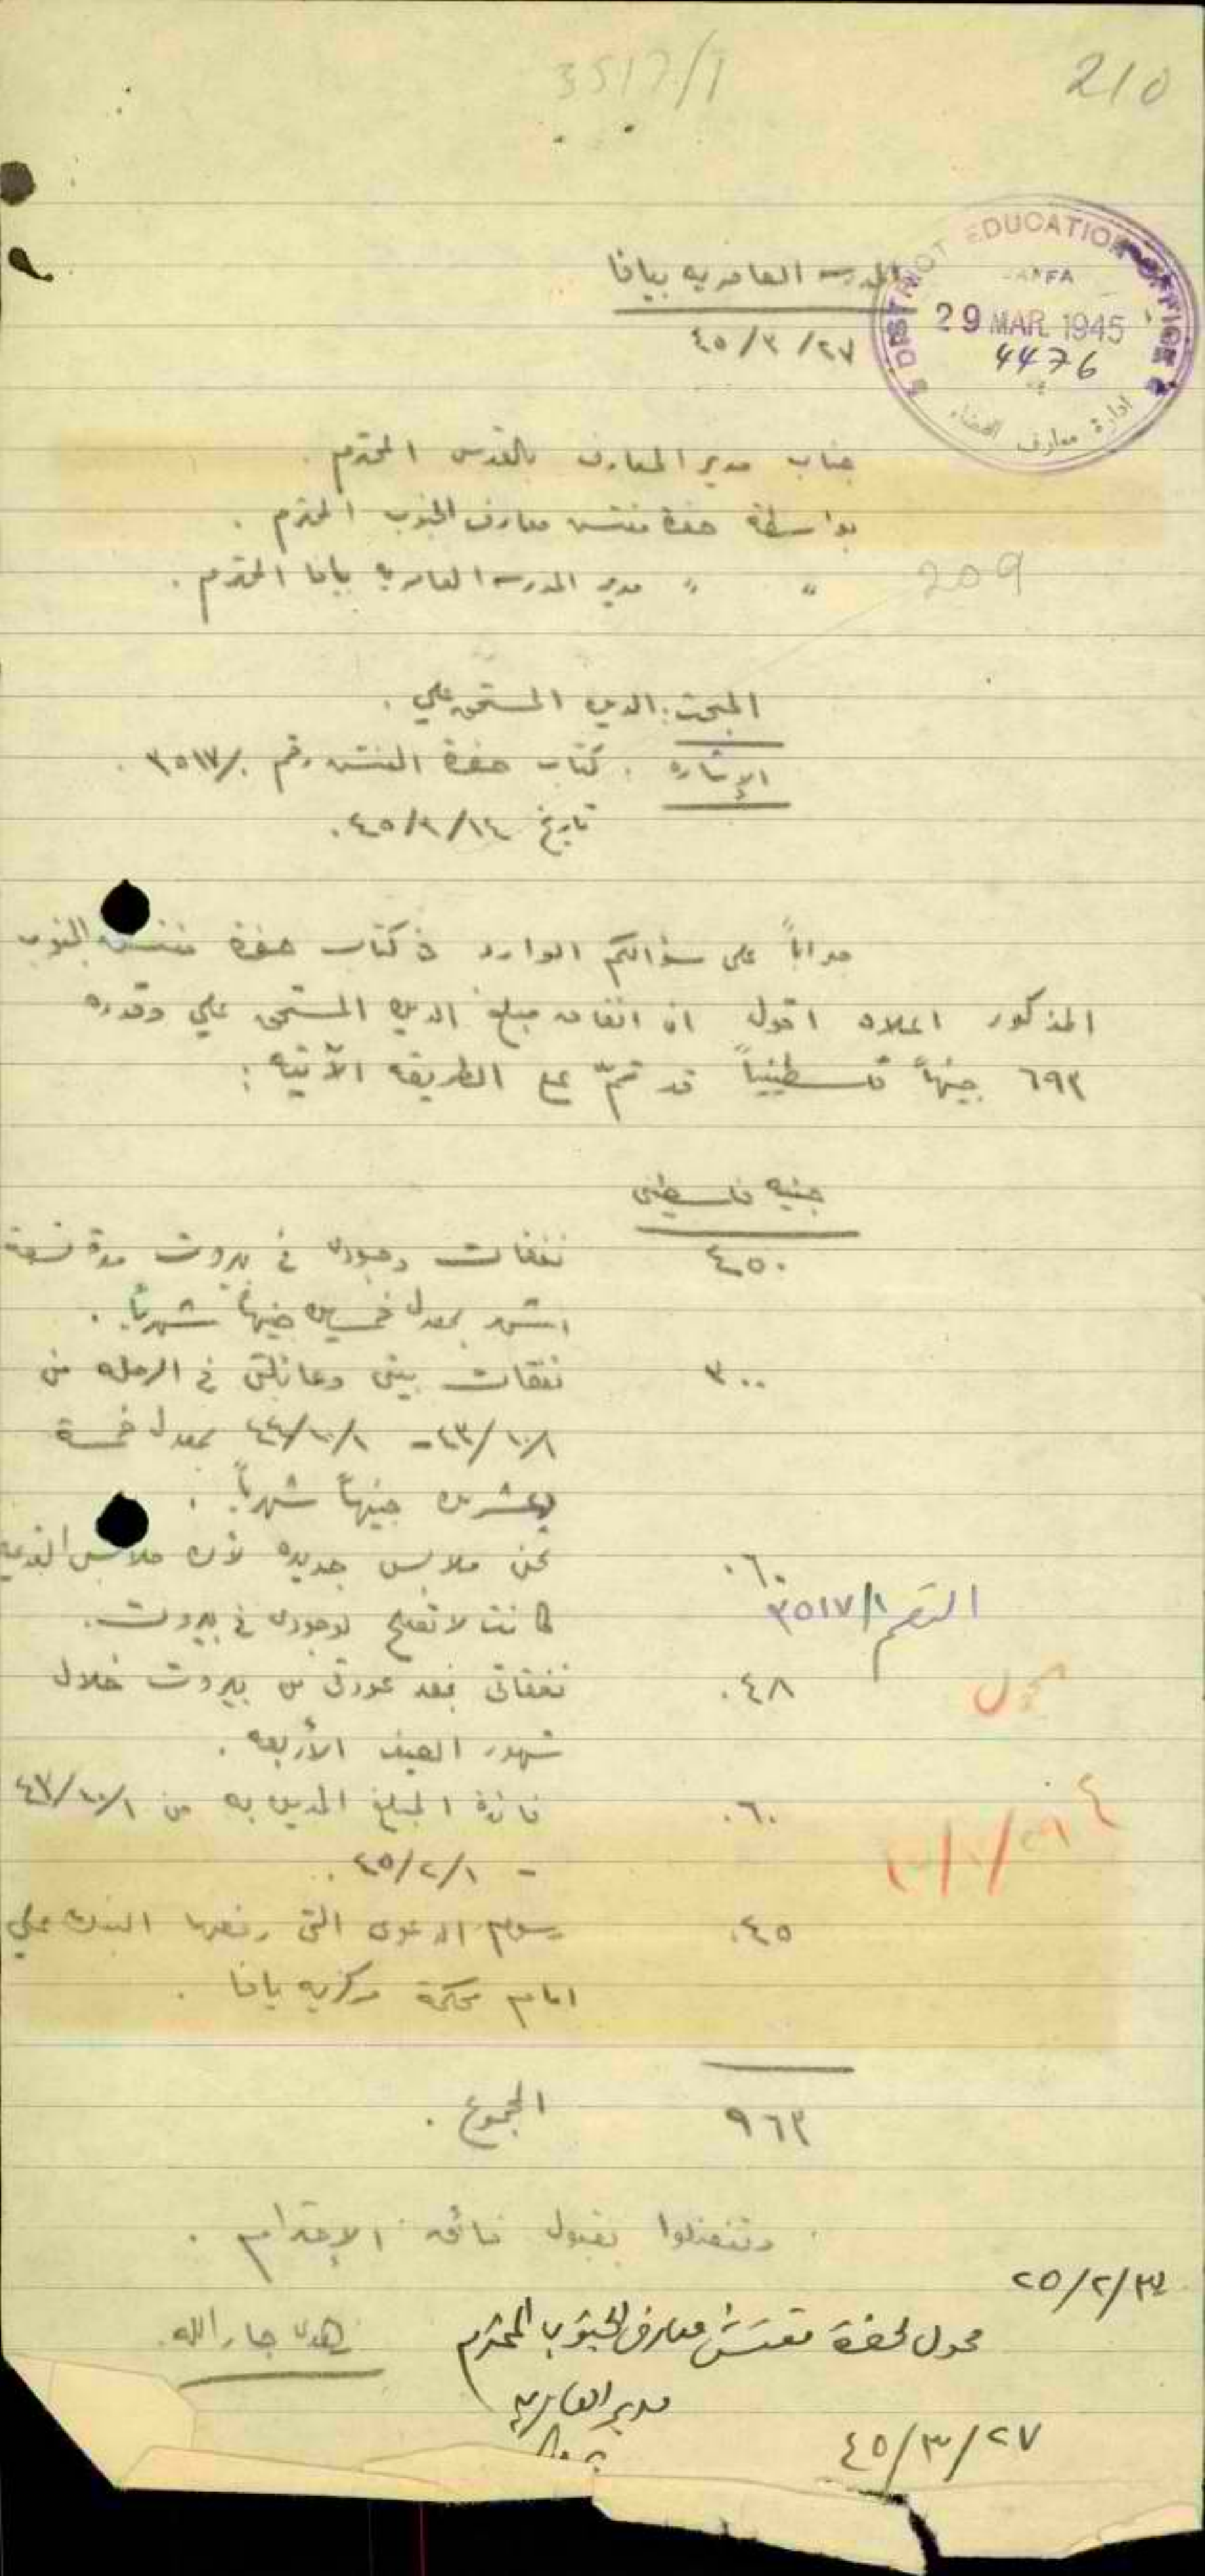 3517/1
210
المدرسه العامريه بيافا
٤٥/٣/٢٧
DISTRICT EDUCATION OFFICE
JAFFA
29 MAR 1945
4476
ادارة معارف القضاء
جناب مدير المعارف بالقدس المحترم .
بواسطة حضرة مفتش معارف الجنوب المحترم .
" " مدير المدرسه العامريه بيافا المحترم .
209
المبحث : الدين المستحق علي .
الإشاره . كتاب حضرة المفتش رقم ٣٥١٧/١ .
تاريخ ٤٥/٣/١٤ .
جواباً على سؤالكم الوارد في كتاب حضرة مفتش الجنوب
المذكور اعلاه اقول ان انفاق مبلغ الدين المستحق علي وقدره
٦٩٣ جنيهاً فلسطينياً قد تمّ على الطريقه الآتيه :
جنيه فلسطيني
٤٥٠ نفقات وجودي في بيروت مدة تسعة
اشهر بمعدل خمسين جنيهاً شهرياً .
٣٠٠ نفقات بيتي وعائلتي في الرمله من
٤٣/١٠/١ - ٤٤/١٠/١ بمعدل خمسة
وعشرين جنيهاً شهرياً .
٠٦٠ ثمن ملابس جديده لأن ملابسي القديمه
كانت لا تصلح لوجودي في بيروت .
الرقم ٣٥١٧/١
٠٤٨ نفقاتي بعد عودتي من بيروت خلال
شهور الصيف الأربعه .
٠٦٠ فائدة المبلغ المدين به من ٤٣/١٠/١
- ٤٥/٢/١ .
٠٤٥ رسوم الدعوى التي رفعها البنك علي
امام محكمة مركزيه يافا .
٩٦٣ المجموع .
وتفضلوا بقبول فائق الإحترام .
جار الله
محول لحضرة مفتش معارف الجنوب المحترم
مدير العامريه
٤٥/٣/٢٧